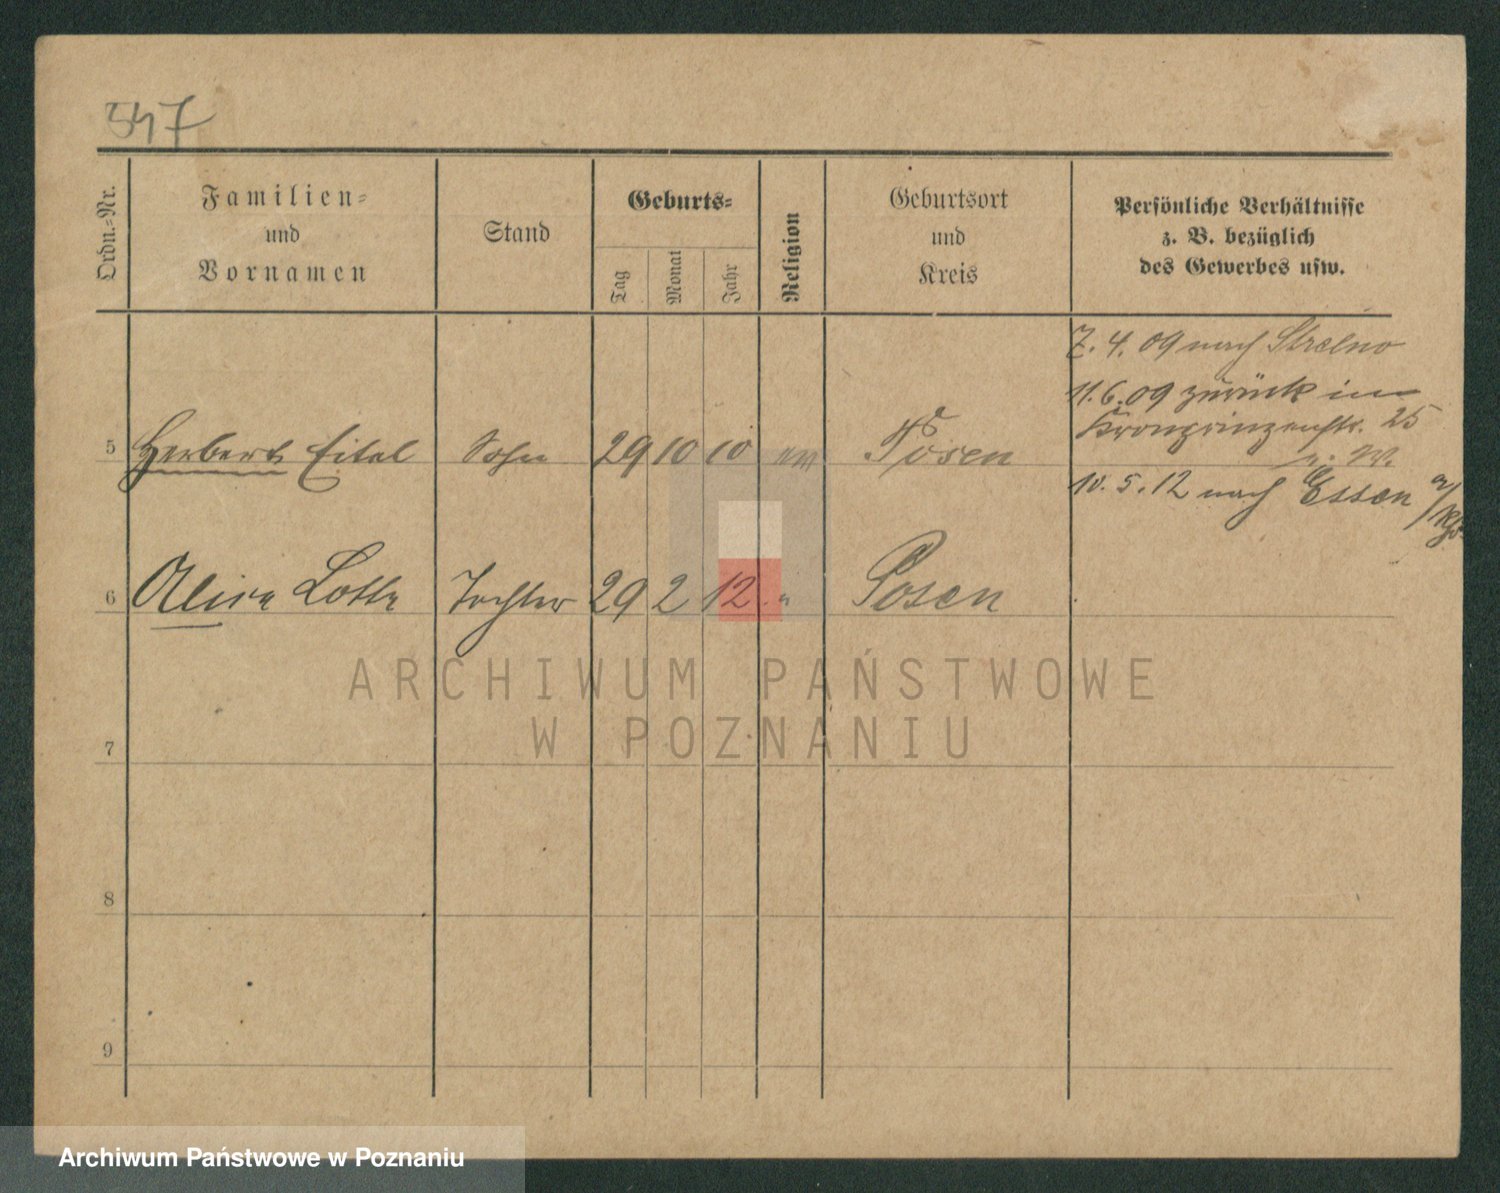 547
Ordn.-Nr.
Familien-
und
Vornamen
Stand
Geburts-
Tag
Monat
Jahr
Religion
Geburtsort
und
Kreis
Persönliche Verhältnisse
z. B. bezüglich
des Gewerbes usw.
7. 4. 09 nach Strelno
11. 6. 09 zurück in
Kronprinzenstr. 25
5 Herbert Eitel Sohn 29 10 10 ev Posen
10. 5. 12 nach Essen a/
6 Lotte Tochter 29 2 12 " Posen
ARCHIWUM PAŃSTWOWE
W POZNANIU
7
8
9
Archiwum Państwowe w Poznaniu